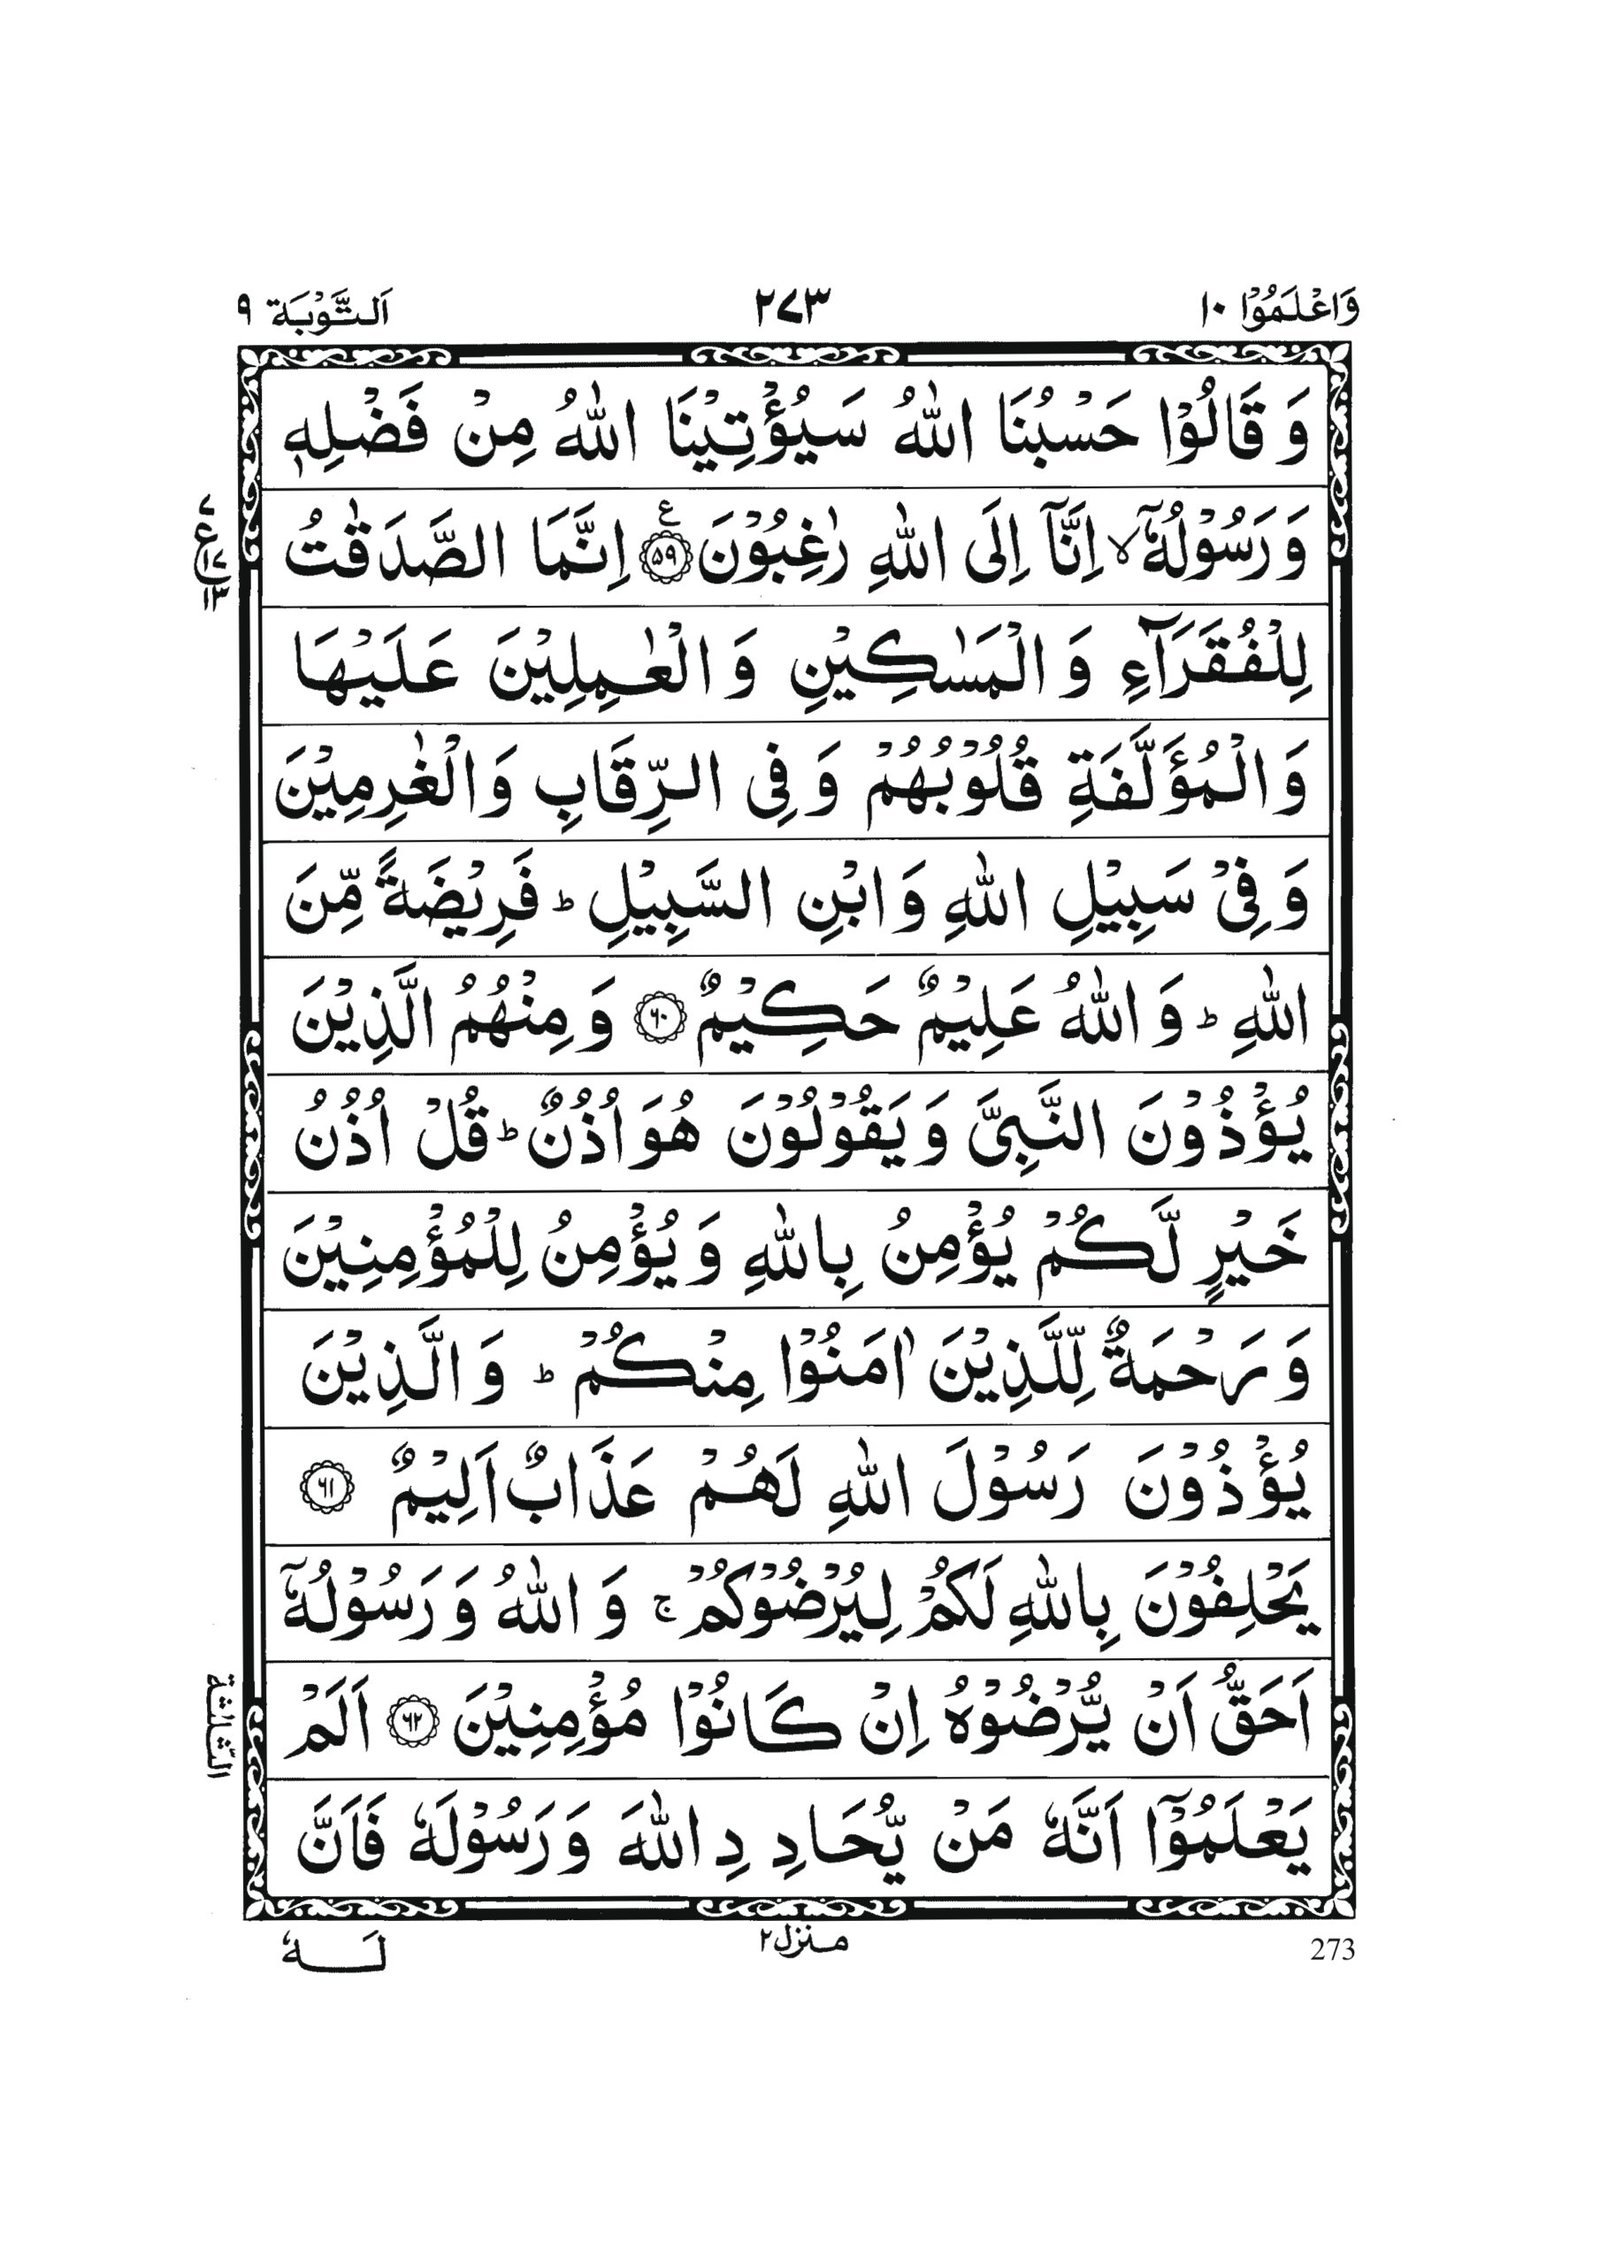 وَاعْلَمُوْۤا ١٠
٢٧٣
اَلتَّوْبَة ٩
وَ قَالُوْا حَسْبُنَا اللّٰهُ سَيُؤْتِيْنَا اللّٰهُ مِنْ فَضْلِهٖ
وَ رَسُوْلُهٗۤ ۙ اِنَّاۤ اِلَى اللّٰهِ رٰغِبُوْنَ ﴿٥٩﴾ ع اِنَّمَا الصَّدَقٰتُ
لِلْفُقَرَآءِ وَ الْمَسٰكِيْنِ وَ الْعٰمِلِيْنَ عَلَيْهَا
وَ الْمُؤَلَّفَةِ قُلُوْبُهُمْ وَ فِى الرِّقَابِ وَ الْغٰرِمِيْنَ
وَ فِىْ سَبِيْلِ اللّٰهِ وَ ابْنِ السَّبِيْلِ ؕ فَرِيْضَةً مِّنَ
اللّٰهِ ؕ وَ اللّٰهُ عَلِيْمٌ حَكِيْمٌ ﴿٦٠﴾ وَ مِنْهُمُ الَّذِيْنَ
يُؤْذُوْنَ النَّبِىَّ وَ يَقُوْلُوْنَ هُوَ اُذُنٌ ؕ قُلْ اُذُنُ
خَيْرٍ لَّكُمْ يُؤْمِنُ بِاللّٰهِ وَ يُؤْمِنُ لِلْمُؤْمِنِيْنَ
وَ رَحْمَةٌ لِّلَّذِيْنَ اٰمَنُوْا مِنْكُمْ ؕ وَ الَّذِيْنَ
يُؤْذُوْنَ رَسُوْلَ اللّٰهِ لَهُمْ عَذَابٌ اَلِيْمٌ ﴿٦١﴾
يَحْلِفُوْنَ بِاللّٰهِ لَكُمْ لِيُرْضُوْكُمْ ۚ وَ اللّٰهُ وَ رَسُوْلُهٗۤ
اَحَقُّ اَنْ يُّرْضُوْهُ اِنْ كَانُوْا مُؤْمِنِيْنَ ﴿٦٢﴾ اَلَمْ
يَعْلَمُوْۤا اَنَّهٗ مَنْ يُّحَادِدِ اللّٰهَ وَ رَسُوْلَهٗ فَاَنَّ
الثّلٰثة
لَهٗ
منزل٢
273